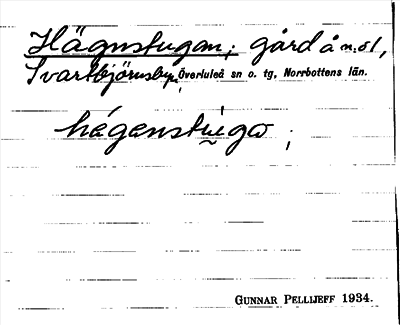 Hägnstugan; gård å n:o 1,
Svartbjörnsbyn, Överluleå sn o. tg, Norrbottens län.
hágenstùigɷ ;
GUNNAR PELLIJEFF 1934.